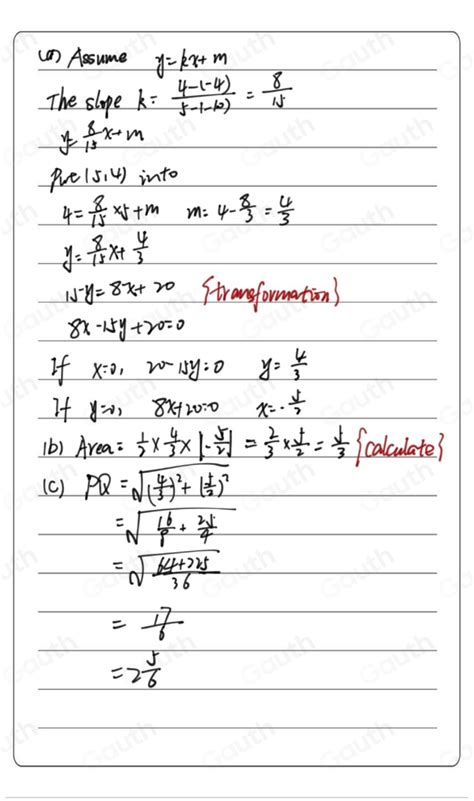 (a) Assume y=kx+m
The slope k= (4-(-4))/(5-(-10)) = 8/15
y=8/15x+m
Put (5,4) into
4=8/15×5+m m=4-8/3=4/3
y=8/15x+4/3
15y=8x+20 {transformation}
8x-15y+20=0
If x=0, 20-15y=0 y=4/3
If y=0, 8x+20=0 x=-5/2
(b) Area= 1/2×4/3×|-5/2| = 2/3×5/2=5/3 {calculate}
(c) PQ=√((4/3)²+(5/2)²)
=√(16/9+25/4)
=√((64+225)/36)
=17/6
=2 5/6
Gauth